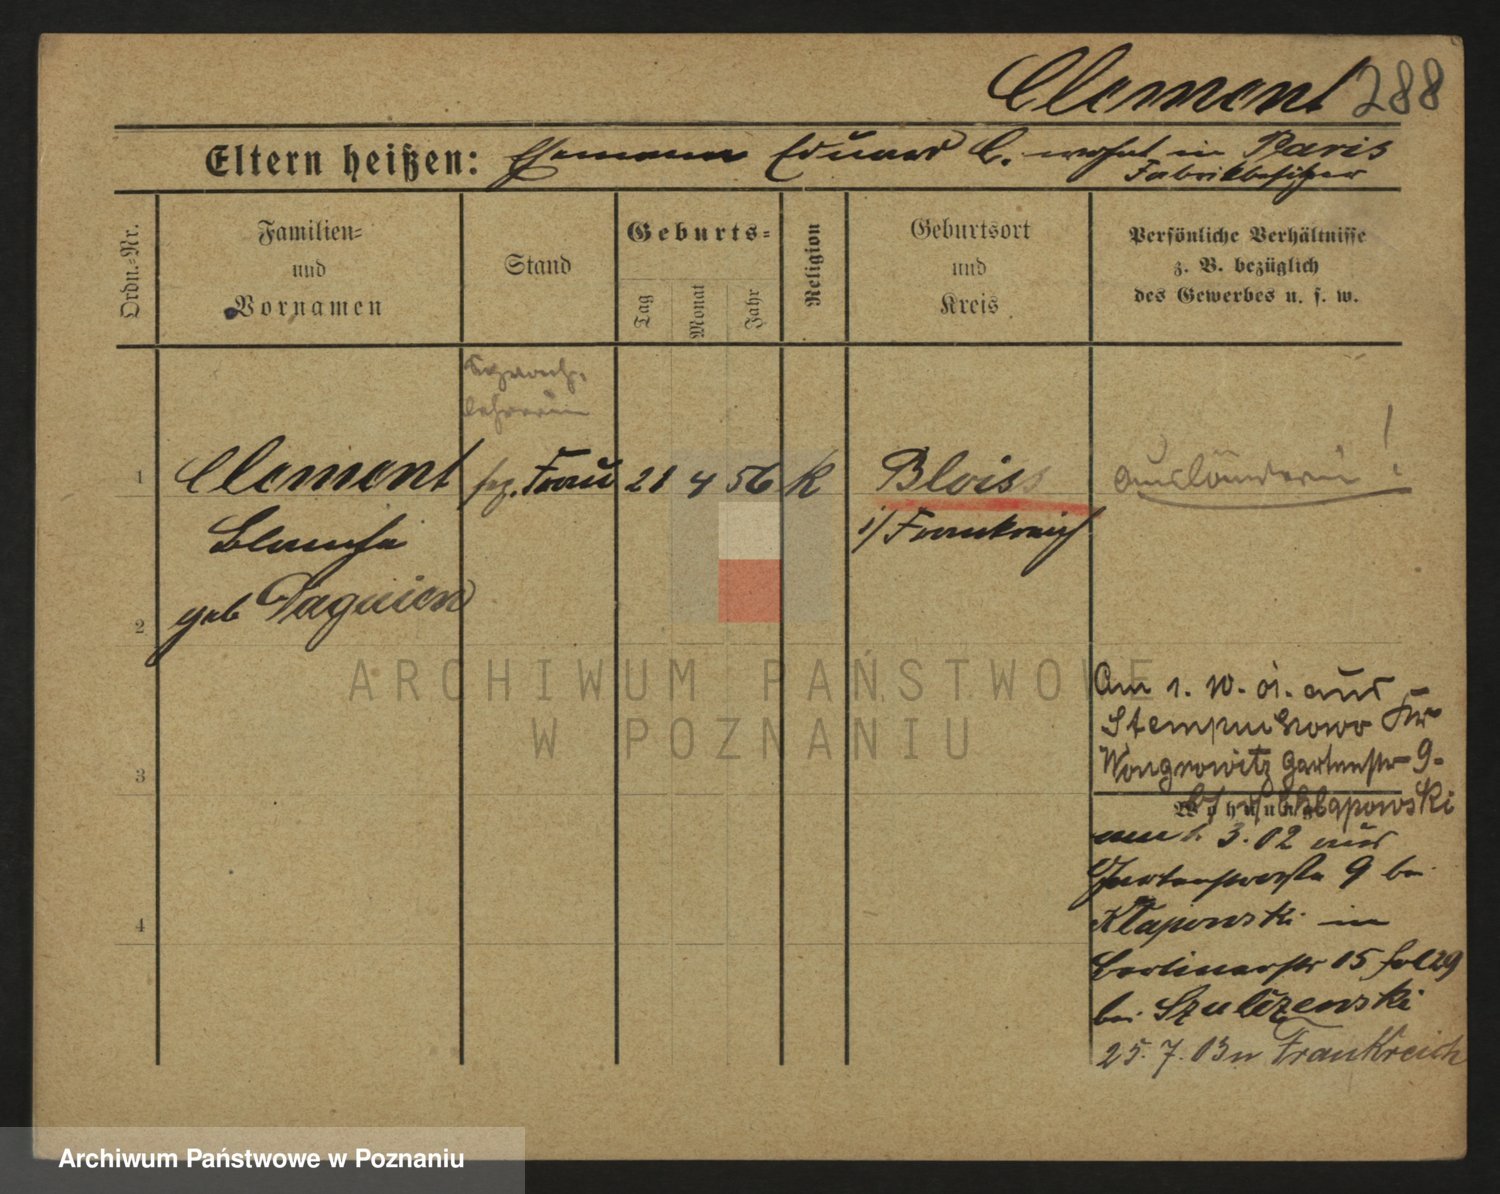 Clement 288
Eltern heißen: Ehemann Eduard C. wohnt in Paris
Fabrikbesitzer
Ordn.-Nr.
Familien-
und
Vornamen
Stand
Geburts-
Tag
Monat
Jahr
Religion
Geburtsort
und
Kreis
Persönliche Verhältnisse
z. B. bezüglich
des Gewerbes u. s. w.
Sprach-
lehrerin
1 Clement Frau 28 4 56 k Bloiss Ausländerin!
Blanche i/ Frankreich
geb Paguien
2
Am 1. 10. 01. aus
Stempuchowo Kr
Wongrowitz Gartenstr 9.
3
Wohnung
bei Chlapowski
am 3. 02 aus
Gartenstraße 9 bei
Klapowski in
4
Berlinerstr 15
bei Szulczewski
25. 7. 03 n Frankreich
ARCHIWUM PAŃSTWOWE
W POZNANIU
Archiwum Państwowe w Poznaniu